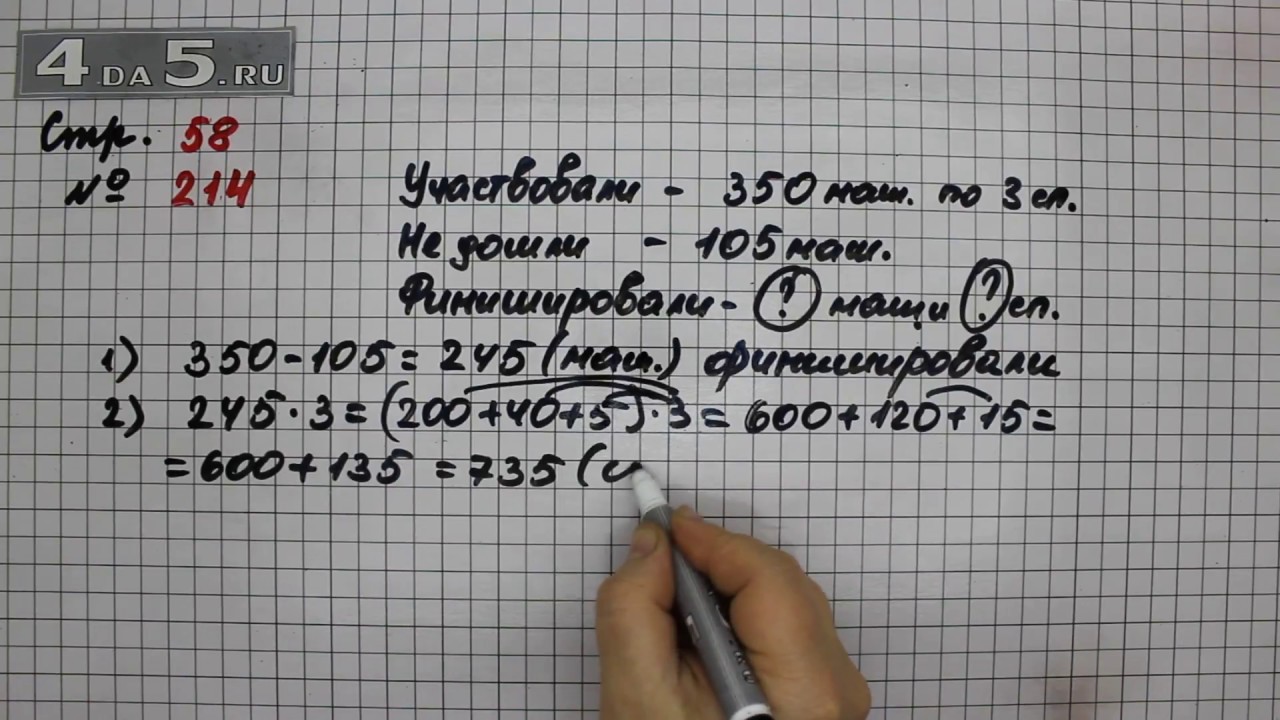 4DA5.RU
Стр. 58
№ 214
Участвовали - 350 маш. по 3 сп.
Не дошли - 105 маш.
Финишировали - ? маш и ? сп.
1) 350-105=245 (маш.) финишировали
2) 245·3=(200+40+5)·3=600+120+15=
=600+135=735 (